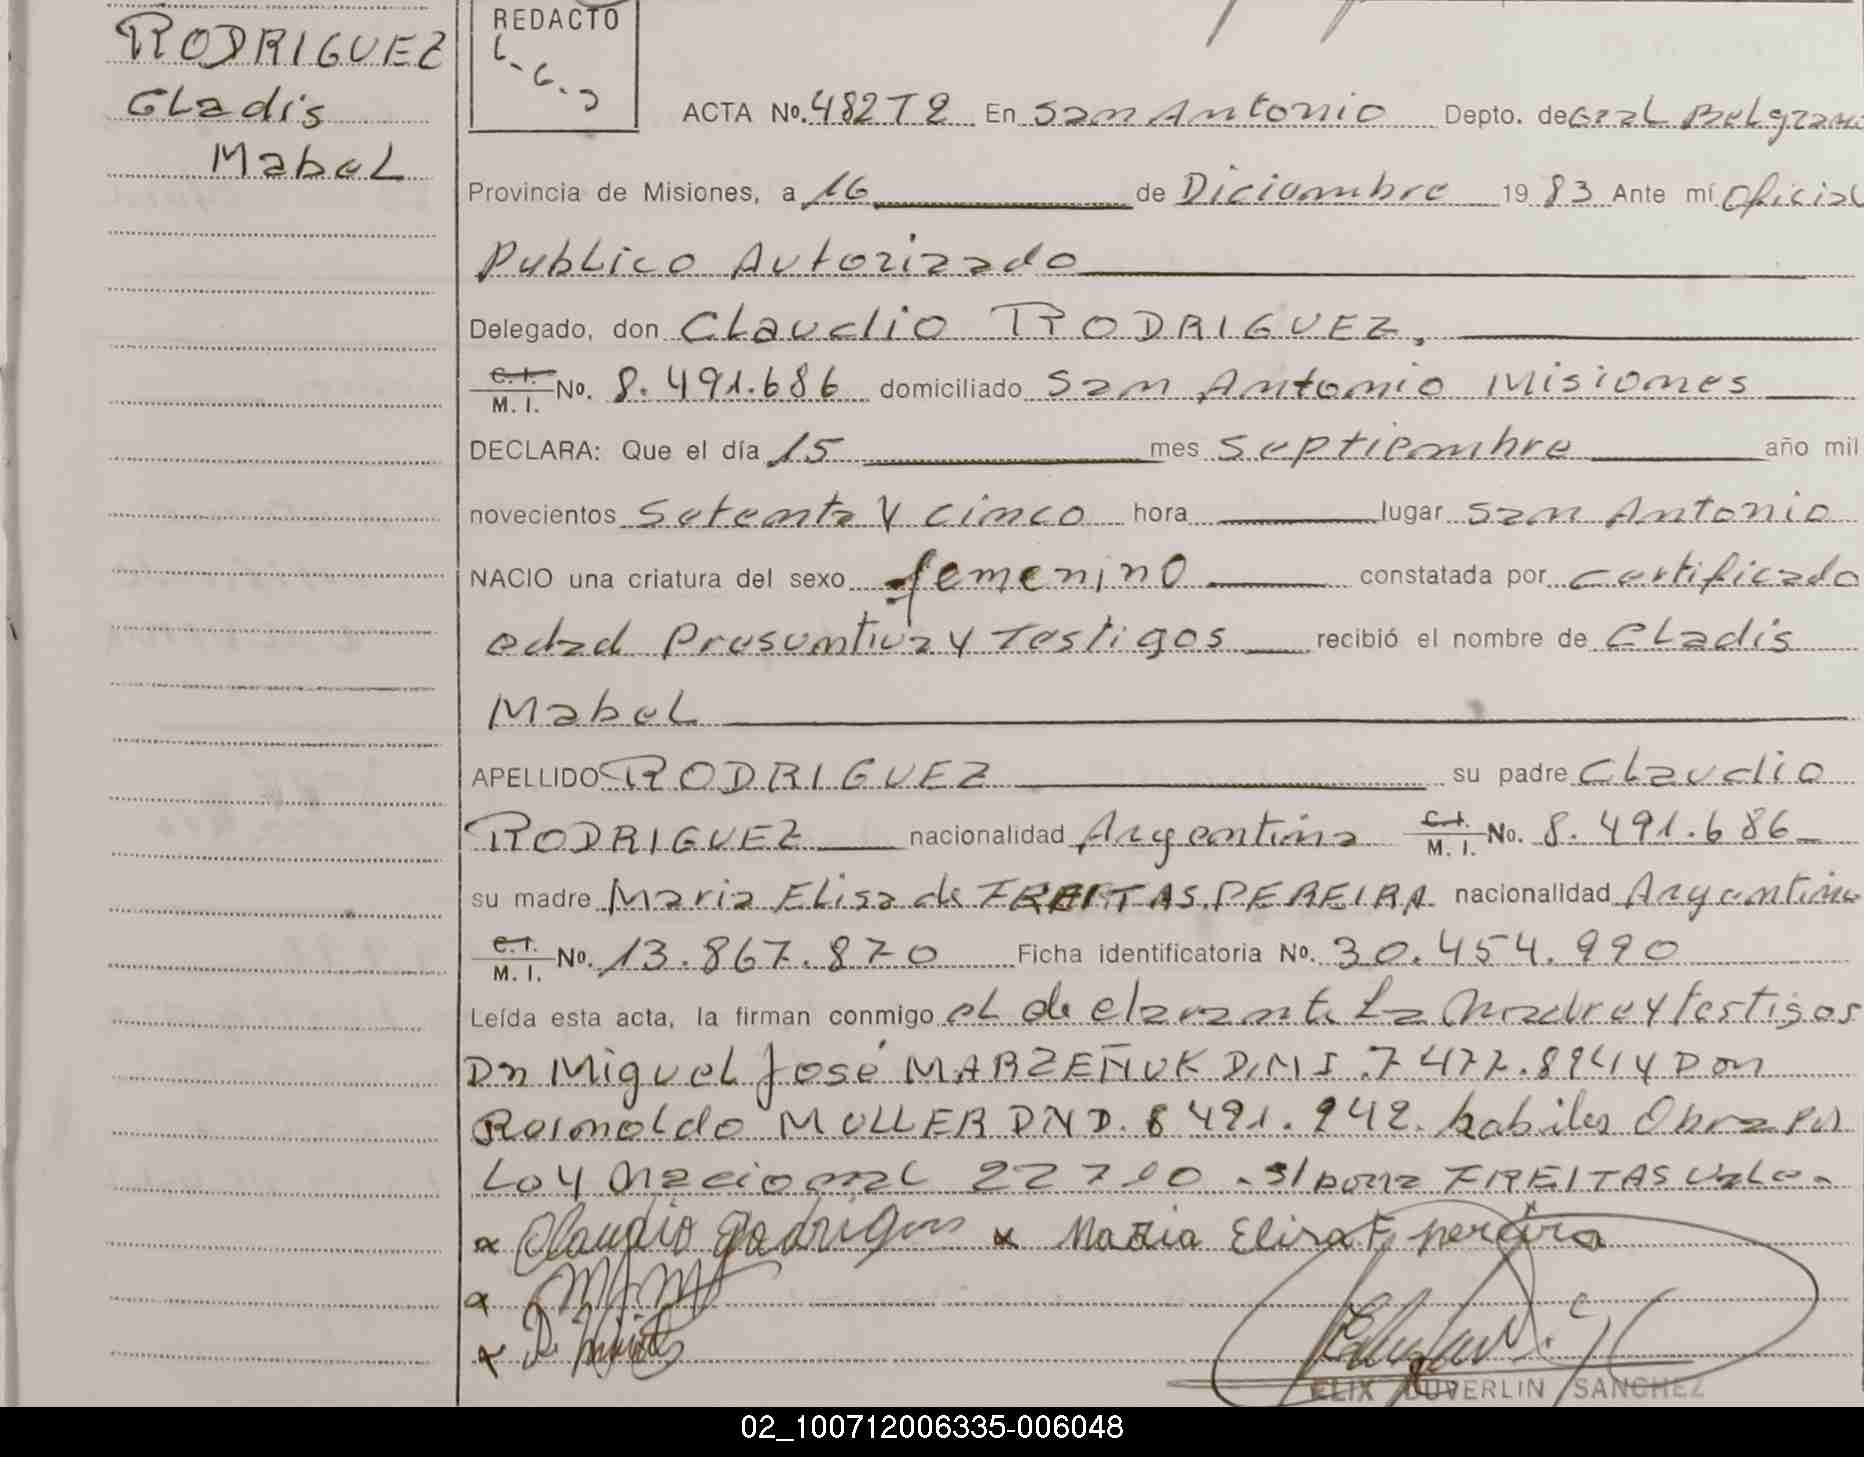 RODRIGUEZ
Gladis
Mabel
REDACTO
ACTA No. 482 T 2 En San Antonio Depto. de Gral Belgrano
Provincia de Misiones, a 16 de Diciembre 19 83 Ante mí Oficial
Publico Autorizado
Delegado, don Claudio RODRIGUEZ,
C.I. M. I. No. 8.491.686 domiciliado San Antonio Misiones
DECLARA: Que el día 15 mes Septiembre año mil
novecientos Setenta y cinco hora lugar San Antonio
NACIO una criatura del sexo femenino constatada por certificado
edad Presuntiva y Testigos recibió el nombre de Gladis
Mabel
APELLIDO RODRIGUEZ su padre Claudio
RODRIGUEZ nacionalidad Argentina C.I. M. I. No. 8.491.686
su madre Maria Elisa de FREITAS PEREIRA nacionalidad Argentina
C.I. M. I. No. 13.867.870 Ficha identificatoria No. 30.454.990
Leída esta acta, la firman conmigo el declarante La Madre y testigos
Dn Miguel José MARZEÑUK D.N.I. 7 477.894 y Don
Reinoldo MULLER DND. 8 491.942. habiles Obra por
Ley Nacional 22710. s/ borra FREITAS Vale.
x Claudio Rodrigues x Maria Elisa F. pereira
x
x
ELIX DUVERLIN SANCHEZ
02_100712006335-006048